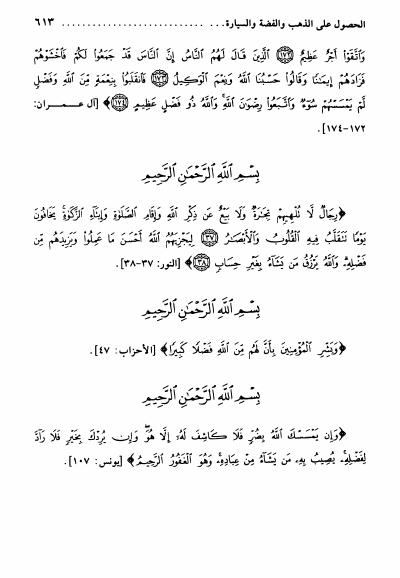 الحصول على الذهب والفضة والسيارة... ........................ ٦١٣
وَٱتَّقَوْا۟ أَجْرٌ عَظِيمٌ ١٧٢ ٱلَّذِينَ قَالَ لَهُمُ ٱلنَّاسُ إِنَّ ٱلنَّاسَ قَدْ جَمَعُوا۟ لَكُمْ فَٱخْشَوْهُمْ
فَزَادَهُمْ إِيمَٰنًا وَقَالُوا۟ حَسْبُنَا ٱللَّهُ وَنِعْمَ ٱلْوَكِيلُ ١٧٣ فَٱنقَلَبُوا۟ بِنِعْمَةٍ مِّنَ ٱللَّهِ وَفَضْلٍ
لَّمْ يَمْسَسْهُمْ سُوٓءٌ وَٱتَّبَعُوا۟ رِضْوَٰنَ ٱللَّهِ وَٱللَّهُ ذُو فَضْلٍ عَظِيمٍ ١٧٤﴾ [آل عمـــران:
١٧٢-١٧٤].
بِسْمِ ٱللَّهِ ٱلرَّحْمَٰنِ ٱلرَّحِيمِ
﴿رِجَالٌ لَّا تُلْهِيهِمْ تِجَٰرَةٌ وَلَا بَيْعٌ عَن ذِكْرِ ٱللَّهِ وَإِقَامِ ٱلصَّلَوٰةِ وَإِيتَآءِ ٱلزَّكَوٰةِ يَخَافُونَ
يَوْمًا تَتَقَلَّبُ فِيهِ ٱلْقُلُوبُ وَٱلْأَبْصَٰرُ ٣٧ لِيَجْزِيَهُمُ ٱللَّهُ أَحْسَنَ مَا عَمِلُوا۟ وَيَزِيدَهُم مِّن
فَضْلِهِۦ وَٱللَّهُ يَرْزُقُ مَن يَشَآءُ بِغَيْرِ حِسَابٍ ٣٨﴾ [النور: ٣٧-٣٨].
بِسْمِ ٱللَّهِ ٱلرَّحْمَٰنِ ٱلرَّحِيمِ
﴿وَبَشِّرِ ٱلْمُؤْمِنِينَ بِأَنَّ لَهُم مِّنَ ٱللَّهِ فَضْلًا كَبِيرًا﴾ [الأحزاب: ٤٧].
بِسْمِ ٱللَّهِ ٱلرَّحْمَٰنِ ٱلرَّحِيمِ
﴿وَإِن يَمْسَسْكَ ٱللَّهُ بِضُرٍّ فَلَا كَاشِفَ لَهُۥٓ إِلَّا هُوَ وَإِن يُرِدْكَ بِخَيْرٍ فَلَا رَآدَّ
لِفَضْلِهِۦ يُصِيبُ بِهِۦ مَن يَشَآءُ مِنْ عِبَادِهِۦ وَهُوَ ٱلْغَفُورُ ٱلرَّحِيمُ﴾ [يونس: ١٠٧].